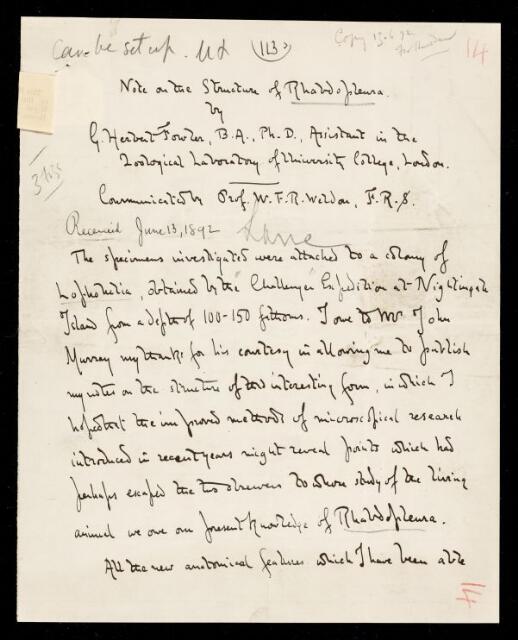 Can be set up.
113
Copy 13.6.92
14
Note on the Structure of Rhabdopleura.
by
G. Herbert Fowler, B.A., Ph.D., Assistant in the
Zoological Laboratory of University College, London.
Communicated by Prof. W. F. R. Weldon, F.R.S.
Received June 13, 1892
The specimens investigated were attached to a colony of
Lophohelia, obtained by the "Challenger" Expedition at Nightingale
Island from a depth of 100-150 fathoms. I owe to Mr John
Murray my thanks for his courtesy in allowing me to publish
my notes on the structure of this interesting form, in which I
hoped that the improved methods of microscopical research
introduced in recent years might reveal points which had
perhaps escaped the two observers to whose study of the living
animal we owe our present knowledge of Rhabdopleura.
All the new anatomical features which I have been able